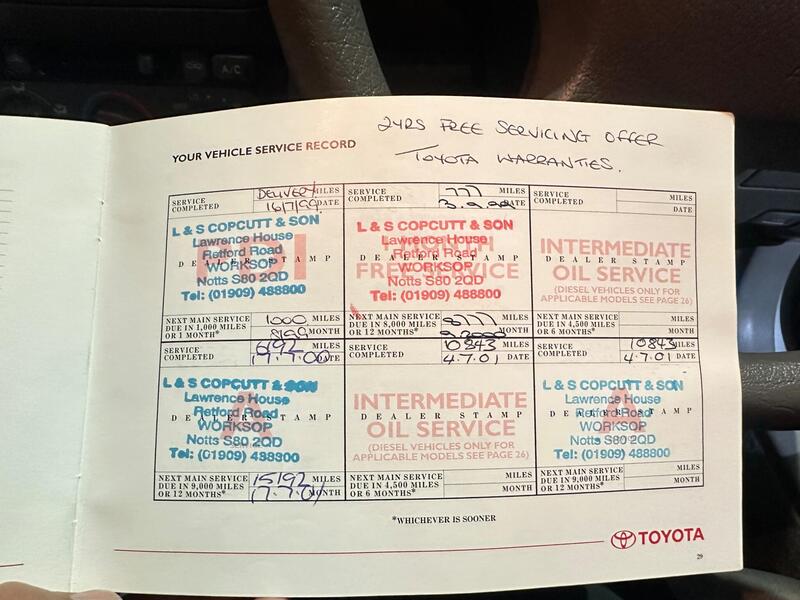 A/C
2YRS FREE SERVICING OFFER
TOYOTA WARRANTIES.
YOUR VEHICLE SERVICE RECORD
SERVICE COMPLETED
DELIVERY MILES
16/7/99 DATE
L & S COPCUTT & SON
Lawrence House
Retford Road
DEALER STAMP
WORKSOP
Notts S80 2QD
Tel: (01909) 488800
NEXT MAIN SERVICE
DUE IN 1,000 MILES
OR 1 MONTH*
1,000 MILES
8/99 MONTH
SERVICE COMPLETED
777 MILES
DATE
L & S COPCUTT & SON
Lawrence House
Retford Road
DEALER STAMP
FREE SERVICE
WORKSOP
Notts S80 2QD
Tel: (01909) 488800
NEXT MAIN SERVICE
DUE IN 8,000 MILES
OR 12 MONTHS*
8777 MILES
9.2000 MONTH
SERVICE COMPLETED
MILES
DATE
INTERMEDIATE
DEALER STAMP
OIL SERVICE
(DIESEL VEHICLES ONLY FOR
APPLICABLE MODELS SEE PAGE 26)
NEXT MAIN SERVICE
DUE IN 4,500 MILES
OR 6 MONTHS*
MILES
MONTH
SERVICE COMPLETED
6192 MILES
17.7.00 DATE
L & S COPCUTT & SON
Lawrence House
Retford Road
DEALER STAMP
A
WORKSOP
Notts S80 2QD
Tel: (01909) 488800
NEXT MAIN SERVICE
DUE IN 9,000 MILES
OR 12 MONTHS*
15192 MILES
17.7.01 MONTH
SERVICE COMPLETED
10843 MILES
4.7.01 DATE
INTERMEDIATE
DEALER STAMP
OIL SERVICE
(DIESEL VEHICLES ONLY FOR
APPLICABLE MODELS SEE PAGE 26)
NEXT MAIN SERVICE
DUE IN 4,500 MILES
OR 6 MONTHS*
MILES
MONTH
SERVICE COMPLETED
10843 MILES
4.7.01 DATE
L & S COPCUTT & SON
Lawrence House
Retford Road
DEALER STAMP
WORKSOP
Notts S80 2QD
Tel: (01909) 488800
NEXT MAIN SERVICE
DUE IN 9,000 MILES
OR 12 MONTHS*
MILES
MONTH
*WHICHEVER IS SOONER
TOYOTA
29